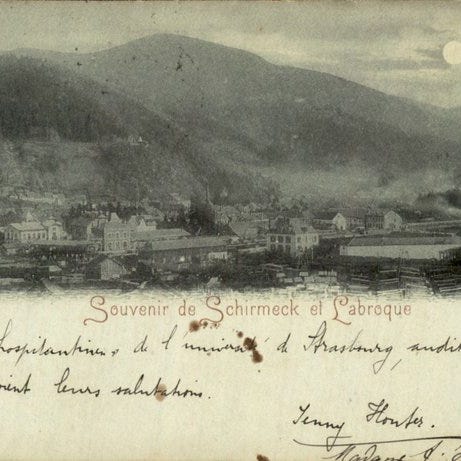 Souvenir de Schirmeck et Labroque
hospitantinen de l'université de Strasbourg, audi
leurs salutations.
Jenny
Madame